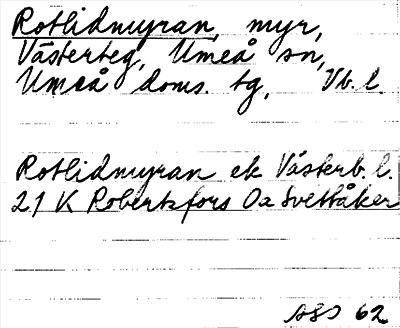 Rotlidmyran, myr,
Västerteg, Umeå sn,
Umeå doms. tg, Vb. l.
Rotlidmyran ek Västerb. l.
21 K Robertsfors Oa Svettåker
62